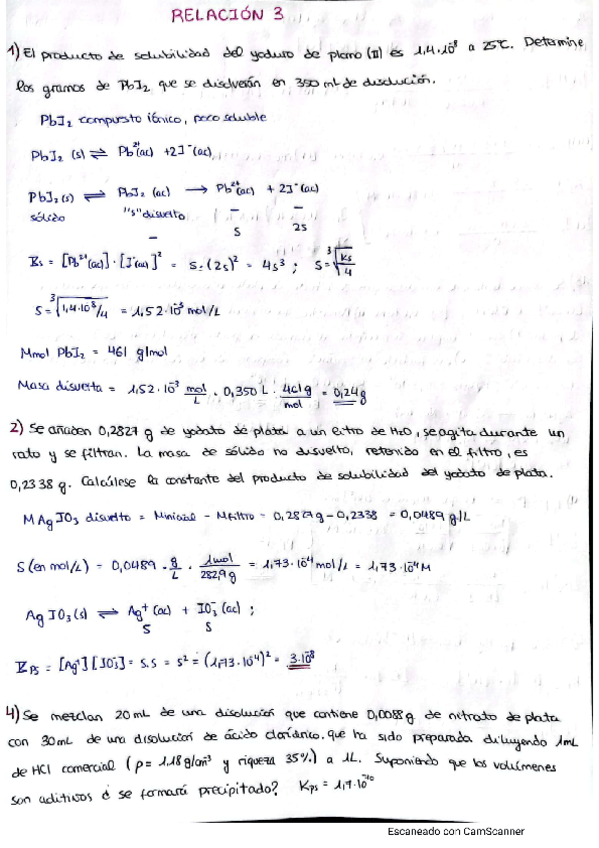 RELACIÓN 3
1) El producto de solubilidad del yoduro de plomo (II) es 1,4·10⁻⁸ a 25ºC. Determine
los gramos de PbI₂ que se disolverán en 350 ml de disolución.
PbI₂ compuesto iónico, poco soluble
PbI₂ (s) ⇌ Pb²⁺(ac) + 2I⁻(ac)
PbI₂(s) ⇌ PbI₂ (ac) → Pb²⁺(ac) + 2I⁻(ac)
sólido "s" disuelto – –
– s 2s
Ks = [Pb²⁺(ac)]·[I⁻(ac)]² = s·(2s)² = 4s³ ; s = ³√Ks/4
s = ³√1,4·10⁻⁸/4 = 1,52·10⁻³ mol/L
Mmol PbI₂ = 461 g/mol
Masa disuelta = 1,52·10⁻³ mol/L · 0,350 L · 461 g/mol = 0,24 g
2) Se añaden 0,2827 g de yodato de plata a un litro de H₂O, se agita durante un
rato y se filtran. La masa de sólido no disuelto, retenido en el filtro, es
0,2338 g. Calcúlese la constante del producto de solubilidad del yodato de plata.
M AgIO₃ disuelto = Minicial - Mfiltro = 0,2827g - 0,2338 = 0,0489 g/L
S (en mol/L) = 0,0489 · g/L · 1mol/282,9 g = 1,73·10⁻⁴ mol/L = 1,73·10⁻⁴ M
AgIO₃(s) ⇌ Ag⁺(ac) + IO₃⁻(ac) ;
S S
KPS = [Ag⁺][IO₃⁻] = s·s = s² = (1,73·10⁻⁴)² = 3·10⁻⁸
4) Se mezclan 20 mL de una disolución que contiene 0,0088 g de nitrato de plata
con 30 mL de una disolución de ácido clorídrico, que ha sido preparada diluyendo 1mL
de HCl comercial (ρ = 1,18 g/cm³ y riqueza 35%) a 1L. Suponiendo que los volúmenes
son aditivos ¿ se formará precipitado? Kps = 1,7·10⁻¹⁰
Escaneado con CamScanner